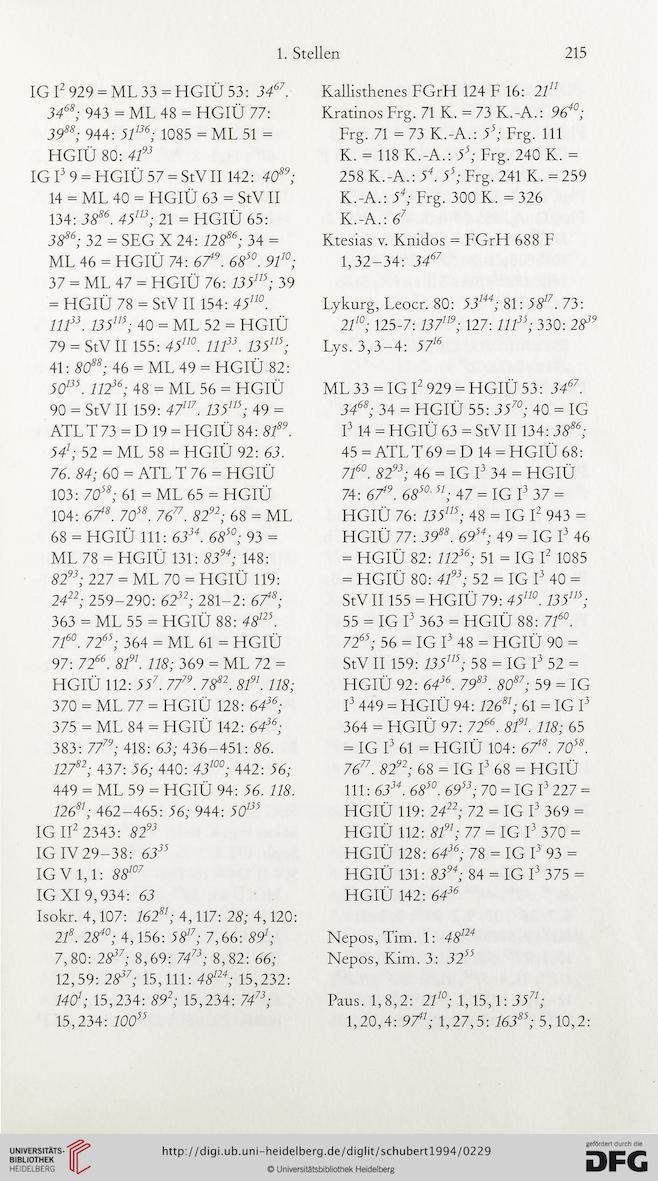 1. Stellen 215
IG I² 929 = ML 33 = HGIÜ 53: 34⁶⁷.
34⁶⁸; 943 = ML 48 = HGIÜ 77:
39⁸⁸; 944: 51¹³⁶; 1085 = ML 51 =
HGIÜ 80: 41⁹³
IG I³ 9 = HGIÜ 57 = StV II 142: 40⁸⁹;
14 = ML 40 = HGIÜ 63 = StV II
134: 38⁸⁶. 45¹¹³; 21 = HGIÜ 65:
38⁸⁶; 32 = SEG X 24: 128⁸⁶; 34 =
ML 46 = HGIÜ 74: 67⁴⁹. 68⁵⁰. 91¹⁰;
37 = ML 47 = HGIÜ 76: 135¹¹⁵; 39
= HGIÜ 78 = StV II 154: 45¹¹⁰.
111³³. 135¹¹⁵; 40 = ML 52 = HGIÜ
79 = StV II 155: 45¹¹⁰. 111³³. 135¹¹⁵;
41: 80⁸⁸; 46 = ML 49 = HGIÜ 82:
50¹³⁵. 112³⁶; 48 = ML 56 = HGIÜ
90 = StV II 159: 47¹¹⁷. 135¹¹⁵; 49 =
ATL T 73 = D 19 = HGIÜ 84: 81⁸⁹.
54¹; 52 = ML 58 = HGIÜ 92: 63.
76. 84; 60 = ATL T 76 = HGIÜ
103: 70⁵⁸; 61 = ML 65 = HGIÜ
104: 67⁴⁸. 70⁵⁸. 76⁷⁷. 82⁹²; 68 = ML
68 = HGIÜ 111: 63³⁴. 68⁵⁰; 93 =
ML 78 = HGIÜ 131: 83⁹⁴; 148:
82⁹³; 227 = ML 70 = HGIÜ 119:
24²²; 259–290: 62³²; 281–2: 67⁴⁸;
363 = ML 55 = HGIÜ 88: 48¹²⁵.
71⁶⁰. 72⁶⁵; 364 = ML 61 = HGIÜ
97: 72⁶⁶. 81⁹¹. 118; 369 = ML 72 =
HGIÜ 112: 55⁷. 77⁷⁹. 78⁸². 81⁹¹. 118;
370 = ML 77 = HGIÜ 128: 64³⁶;
375 = ML 84 = HGIÜ 142: 64³⁶;
383: 77⁷⁹; 418: 63; 436–451: 86.
127⁸²; 437: 56; 440: 43¹⁰⁰; 442: 56;
449 = ML 59 = HGIÜ 94: 56. 118.
126⁸¹; 462–465: 56; 944: 50¹³⁵
IG II² 2343: 82⁹³
IG IV 29–38: 63³⁵
IG V 1, 1: 88¹⁰⁷
IG XI 9, 934: 63
Isokr. 4, 107: 162⁸¹; 4, 117: 28; 4, 120:
21⁸. 28⁴⁰; 4, 156: 58¹⁷; 7, 66: 89¹;
7, 80: 28³⁷; 8, 69: 74⁷³; 8, 82: 66;
12, 59: 28³⁷; 15, 111: 48¹²⁴; 15, 232:
140¹; 15, 234: 89²; 15, 234: 74⁷³;
15, 234: 100⁵⁵
Kallisthenes FGrH 124 F 16: 21¹¹
Kratinos Frg. 71 K. = 73 K.-A.: 96⁴⁰;
Frg. 71 = 73 K.-A.: 5⁵; Frg. 111
K. = 118 K.-A.: 5⁵; Frg. 240 K. =
258 K.-A.: 5⁴. 5⁵; Frg. 241 K. = 259
K.-A.: 5⁴; Frg. 300 K. = 326
K.-A.: 6⁷
Ktesias v. Knidos = FGrH 688 F
1, 32–34: 34⁶⁷
Lykurg, Leocr. 80: 53¹⁴⁴; 81: 58¹⁷. 73:
21¹⁰; 125-7: 137¹¹⁹; 127: 111³⁵; 330: 28³⁹
Lys. 3, 3–4: 57¹⁶
ML 33 = IG I² 929 = HGIÜ 53: 34⁶⁷.
34⁶⁸; 34 = HGIÜ 55: 35⁷⁰; 40 = IG
I³ 14 = HGIÜ 63 = StV II 134: 38⁸⁶;
45 = ATL T 69 = D 14 = HGIÜ 68:
71⁶⁰. 82⁹³; 46 = IG I³ 34 = HGIÜ
74: 67⁴⁹. 68⁵⁰· ⁵¹; 47 = IG I³ 37 =
HGIÜ 76: 135¹¹⁵; 48 = IG I² 943 =
HGIÜ 77: 39⁸⁸. 69⁵⁴; 49 = IG I³ 46
= HGIÜ 82: 112³⁶; 51 = IG I² 1085
= HGIÜ 80: 41⁹³; 52 = IG I³ 40 =
StV II 155 = HGIÜ 79: 45¹¹⁰. 135¹¹⁵;
55 = IG I³ 363 = HGIÜ 88: 71⁶⁰.
72⁶⁵; 56 = IG I³ 48 = HGIÜ 90 =
StV II 159: 135¹¹⁵; 58 = IG I³ 52 =
HGIÜ 92: 64³⁶. 79⁸³. 80⁸⁷; 59 = IG
I³ 449 = HGIÜ 94: 126⁸¹; 61 = IG I³
364 = HGIÜ 97: 72⁶⁶. 81⁹¹. 118; 65
= IG I³ 61 = HGIÜ 104: 67⁴⁸. 70⁵⁸.
76⁷⁷. 82⁹²; 68 = IG I³ 68 = HGIÜ
111: 63³⁴. 68⁵⁰. 69⁵³; 70 = IG I³ 227 =
HGIÜ 119: 24²²; 72 = IG I³ 369 =
HGIÜ 112: 81⁹¹; 77 = IG I³ 370 =
HGIÜ 128: 64³⁶; 78 = IG I³ 93 =
HGIÜ 131: 83⁹⁴; 84 = IG I³ 375 =
HGIÜ 142: 64³⁶
Nepos, Tim. 1: 48¹²⁴
Nepos, Kim. 3: 32⁵⁵
Paus. 1, 8, 2: 21¹⁰; 1, 15, 1: 35⁷¹;
1, 20, 4: 97⁴¹; 1, 27, 5: 163⁸⁵; 5, 10, 2:
UNIVERSITÄTS-
BIBLIOTHEK
HEIDELBERG
http://digi.ub.uni-heidelberg.de/diglit/schubert1994/0229
© Universitätsbibliothek Heidelberg
gefördert durch die
DFG